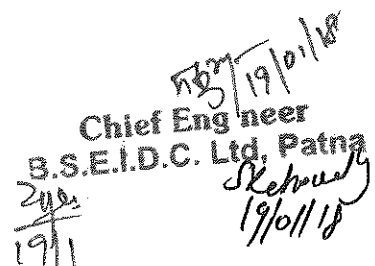 19/01/18
Chief Eng neer
B.S.E.I.D.C. Ltd, Patna
19/01/18
19/1